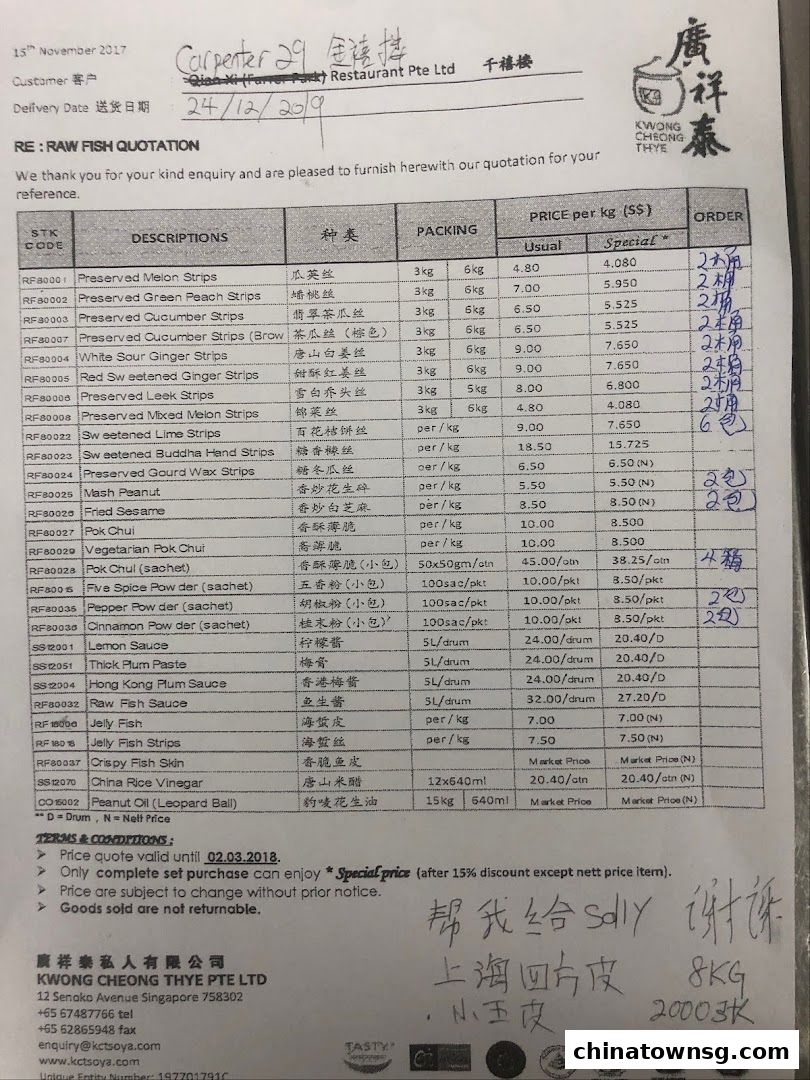 15th November 2017
Carpenter 29 金禧楼
Customer 客户 : Qian Xi (Farrer Park) Restaurant Pte Ltd 千禧楼
Delivery Date 送货日期 : 24/12/2019
廣祥泰
KWONG CHEONG THYE
RE : RAW FISH QUOTATION
We thank you for your kind enquiry and are pleased to furnish herewith our quotation for your
reference.
STK CODE DESCRIPTIONS 种类 PACKING PRICE per kg (S$) ORDER
Usual Special *
RF80001 Preserved Melon Strips 瓜英丝 3kg 6kg 4.80 4.080 2桶
RF80002 Preserved Green Peach Strips 蟠桃丝 3kg 6kg 7.00 5.950 2桶
RF80003 Preserved Cucumber Strips 翡翠茶瓜丝 3kg 6kg 6.50 5.525 2桶
RF80007 Preserved Cucumber Strips (Brow 茶瓜丝 (棕色) 3kg 6kg 6.50 5.525 2桶
RF80004 White Sour Ginger Strips 唐山白姜丝 3kg 6kg 9.00 7.650 2桶
RF80005 Red Sweetened Ginger Strips 甜酥红姜丝 3kg 6kg 9.00 7.650 2桶
RF80006 Preserved Leek Strips 雪白乔头丝 3kg 5kg 8.00 6.800 2桶
RF80008 Preserved Mixed Melon Strips 锦菜丝 3kg 6kg 4.80 4.080 2桶
RF80022 Sweetened Lime Strips 百花桔饼丝 per / kg 9.00 7.650 6包
RF80023 Sweetened Buddha Hand Strips 糖香橼丝 per / kg 18.50 15.725
RF80024 Preserved Gourd Wax Strips 糖冬瓜丝 per / kg 6.50 6.50 (N)
RF80025 Mash Peanut 香炒花生碎 per / kg 5.50 5.50 (N) 2包
RF80026 Fried Sesame 香炒白芝麻 per / kg 8.50 8.50 (N) 2包
RF80027 Pok Chui 香酥薄脆 per / kg 10.00 8.500
RF80029 Vegetarian Pok Chui 斋薄脆 per / kg 10.00 8.500
RF80028 Pok Chui (sachet) 香酥薄脆 (小包) 50x50gm/ctn 45.00/ctn 38.25/ctn 4箱
RF80015 Five Spice Powder (sachet) 五香粉 (小包) 100sac/pkt 10.00/pkt 8.50/pkt
RF80035 Pepper Powder (sachet) 胡椒粉 (小包) 100sac/pkt 10.00/pkt 8.50/pkt 2包
RF80036 Cinnamon Powder (sachet) 桂末粉 (小包) 100sac/pkt 10.00/pkt 8.50/pkt 2包
SS12001 Lemon Sauce 柠檬酱 5L/drum 24.00/drum 20.40/D
SS12051 Thick Plum Paste 梅膏 5L/drum 24.00/drum 20.40/D
SS12004 Hong Kong Plum Sauce 香港梅酱 5L/drum 24.00/drum 20.40/D
RF80032 Raw Fish Sauce 鱼生酱 5L/drum 32.00/drum 27.20/D
RF18006 Jelly Fish 海蜇皮 per / kg 7.00 7.00 (N)
RF18018 Jelly Fish Strips 海蜇丝 per / kg 7.50 7.50 (N)
RF80037 Crispy Fish Skin 香脆鱼皮 Market Price Market Price (N)
SS12070 China Rice Vinegar 唐山米醋 12x640ml 20.40/ctn 20.40/ctn (N)
CO15002 Peanut Oil (Leopard Ball) 豹唛花生油 15kg 640ml Market Price Market Price (N)
** D = Drum , N = Nett Price
TERMS & CONDITIONS :
➢ Price quote valid until 02.03.2018.
➢ Only complete set purchase can enjoy * Special price (after 15% discount except nett price item).
➢ Price are subject to change without prior notice.
➢ Goods sold are not returnable.
帮我给 Solly 谢谢
上海四方皮 8KG
小玉皮
廣祥泰私人有限公司
KWONG CHEONG THYE PTE LTD
12 Senoko Avenue Singapore 758302
+65 67487766 tel
+65 62865948 fax
enquiry@kctsoya.com
www.kctsoya.com
Unique Entity Number: 197701791C
TASTY
chinatownsg.com